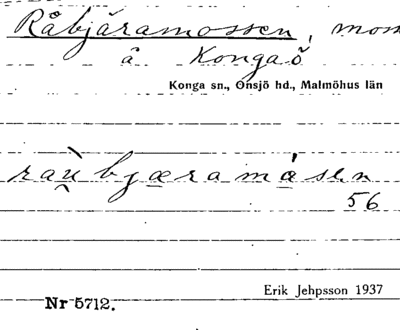 Råbjäramossen, mom
å Kongaö
Konga sn., Onsjö hd., Malmöhus län
raù̯bjæramåsen
56
Erik Jehpsson 1937
Nr 5712.